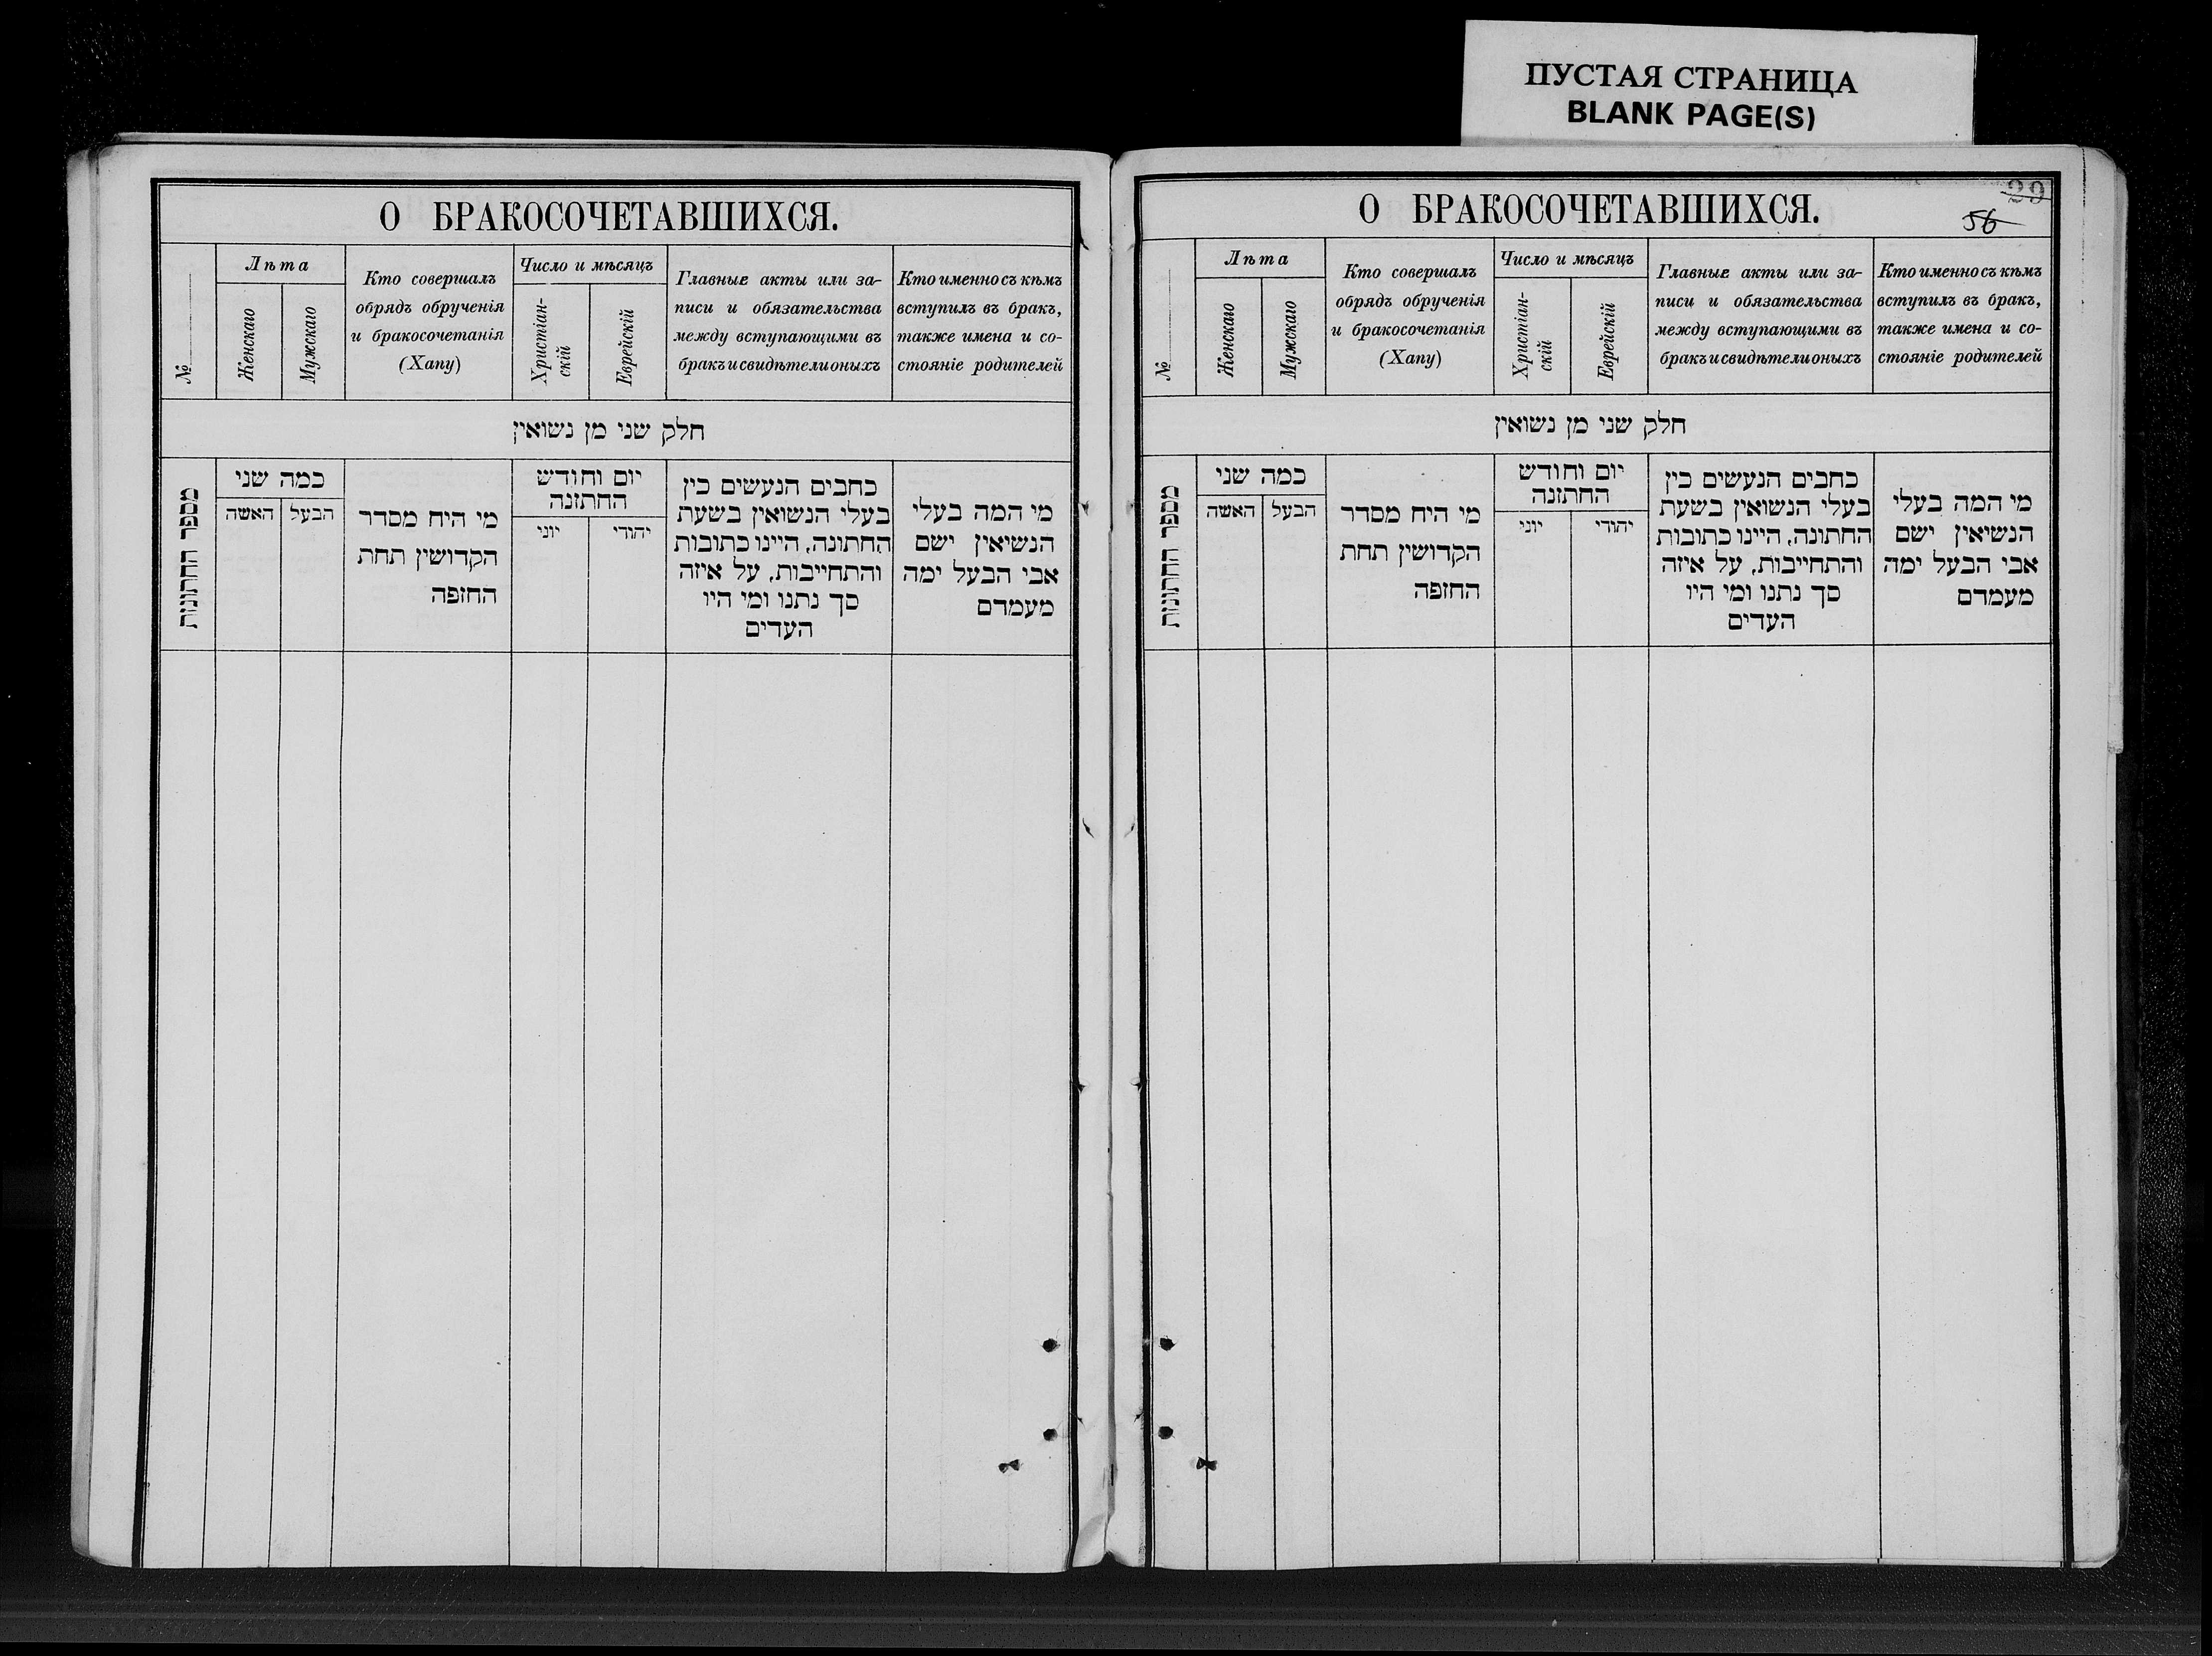 ПУСТАЯ СТРАНИЦА
BLANK PAGE(S)
О БРАКОСОЧЕТАВШИХСЯ.
№
Лѣта
Женскаго
Мужскаго
Кто совершалъ
обрядъ обрученія
и бракосочетанія
(Хапу)
Число и мѣсяцъ
Христіан-
скій
Еврейскій
Главные акты или за-
писи и обязательства
между вступающими въ
бракъ и свидѣтели оныхъ
Кто именно съ кѣмъ
вступилъ въ бракъ,
также имена и со-
стояніе родителей
חלק שני מן נשואין
מספר החתונות
כמה שני
האשה
הבעל
מי היח מסדר
הקדושין תחת
החופה
יום וחודש
החתונה
יוני
יהודי
כחבים הנעשים כין
בעלי הנשואין בשעת
החתונה, היינו כתובות
והתחייבות, על איזה
סך נתנו ומי היו
העדים
מי המה בעלי
הנשיאין ישם
אבי הבעל ימה
מעמדם
29
56
О БРАКОСОЧЕТАВШИХСЯ.
№
Лѣта
Женскаго
Мужскаго
Кто совершалъ
обрядъ обрученія
и бракосочетанія
(Хапу)
Число и мѣсяцъ
Христіан-
скій
Еврейскій
Главные акты или за-
писи и обязательства
между вступающими въ
бракъ и свидѣтели оныхъ
Кто именно съ кѣмъ
вступилъ въ бракъ,
также имена и со-
стояніе родителей
חלק שני מן נשואין
מספר החתונות
כמה שני
האשה
הבעל
מי היח מסדר
הקדושין תחת
החופה
יום וחודש
החתונה
יוני
יהודי
כחבים הנעשים כין
בעלי הנשואין בשעת
החתונה, היינו כתובות
והתחייבות, על איזה
סך נתנו ומי היו
העדים
מי המה בעלי
הנשיאין ישם
אבי הבעל ימה
מעמדם